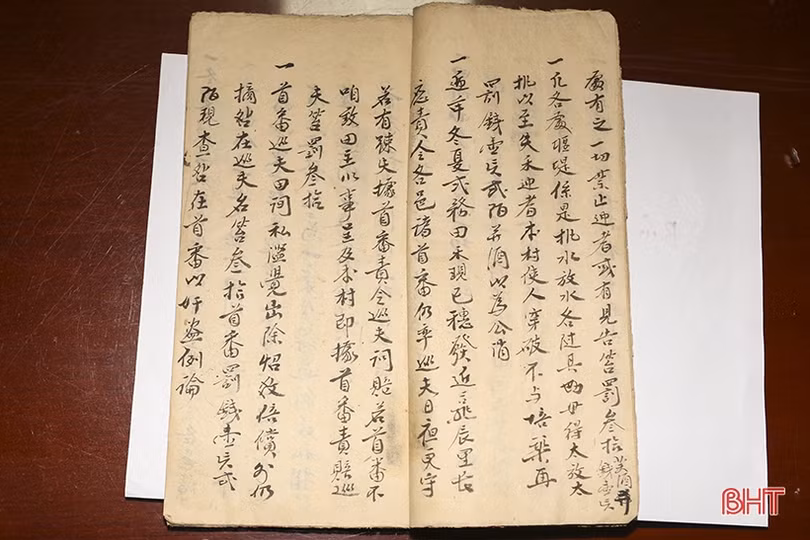 處有之一切禁止迎者或有見告笞罰叁拾
錢壹貫
一凡各處堰堤係是批水放水各隨具毋得太放太
批以至失禾迎者本村使人穿破不与培築再
罰錢壹貫貳陌并酒以為公消
一逓年冬夏貳務田禾現已穗發近熟辰里長
應責令各邑諸首番仍率巡夫日夜更守
若有疎失據首番責令巡夫詞賠若首番不
咱致田主以事呈及本村即據首番責賠巡
夫笞罰叁拾
一首番巡夫田詞私濫覺出除招殺倍償外仍
摘皆在巡夫名笞叁拾首番罰錢壹貫貳
陌現查皆在首番以奸盜例論
BHT